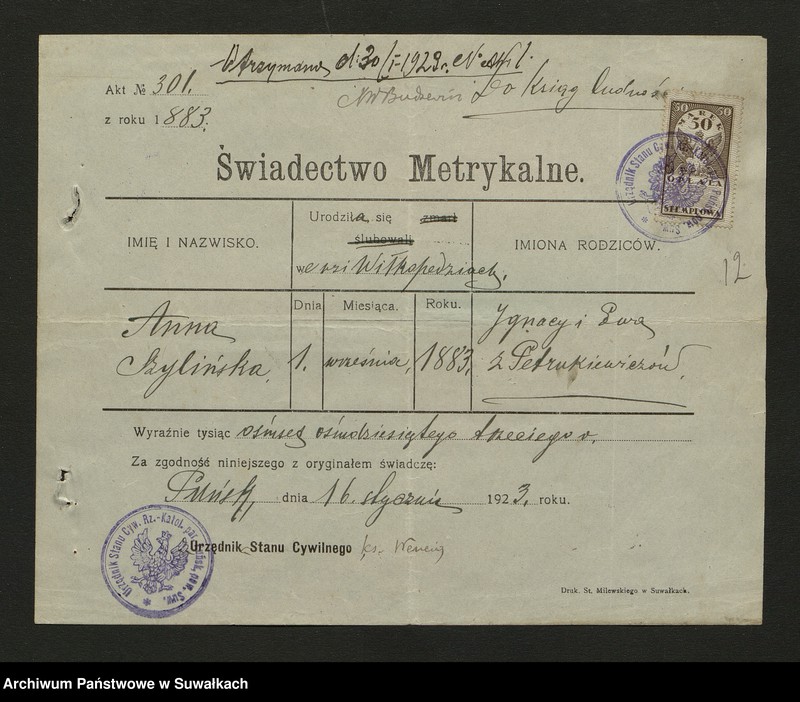 Otrzymano d. 30/I-1923 r. No
Akt № 301.
Do Ksiąg ludności
z roku 1883.
50 50
MAREK
50
OPŁATA
STEMPLOWA
Świadectwo Metrykalne.
IMIĘ I NAZWISKO.
Urodziła się zmarł
ślubowali
we wsi Wiłkopedziach,
IMIONA RODZICÓW.
12
Dnia Miesiąca. Roku.
Anna
Szylińska,
1. września, 1883,
Ignacy i Ewa
z Petrukiewiczów,
Wyraźnie tysiąc ośmset ośmdziesiątego trzeciego r.
Za zgodność niniejszego z oryginałem świadczę:
Puńsk, dnia 16 stycznia 1923. roku.
Urzędnik Stanu Cywilnego ks.
Urzędnik Stanu Cyw. Rz.-Katol. par. Puńsk, pow. Suw.
Druk. St. Milewskiego w Suwałkach.
Archiwum Państwowe w Suwałkach